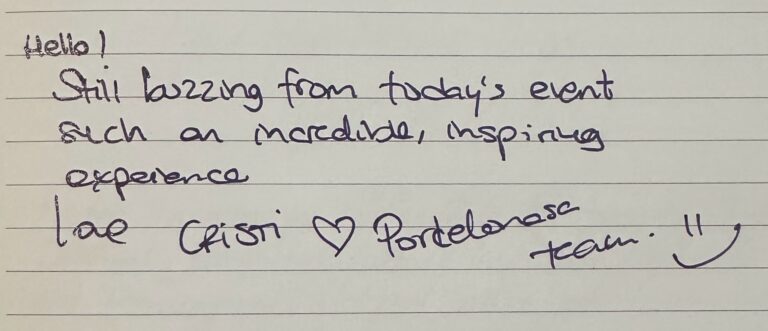 Hello!
Still buzzing from today's event
such an incredible, inspiring
experience
love Cristi ♡ Porcelanosa
team.